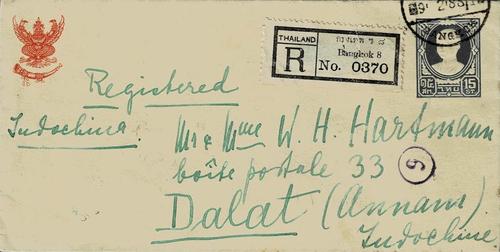 THAILAND
R
Bangkok 8
No. 0370
15
Registered
Indochina.
Mr & Mme W. H. Hartmann
boîte postale 33
6
Dalat (Annam)
Indochine